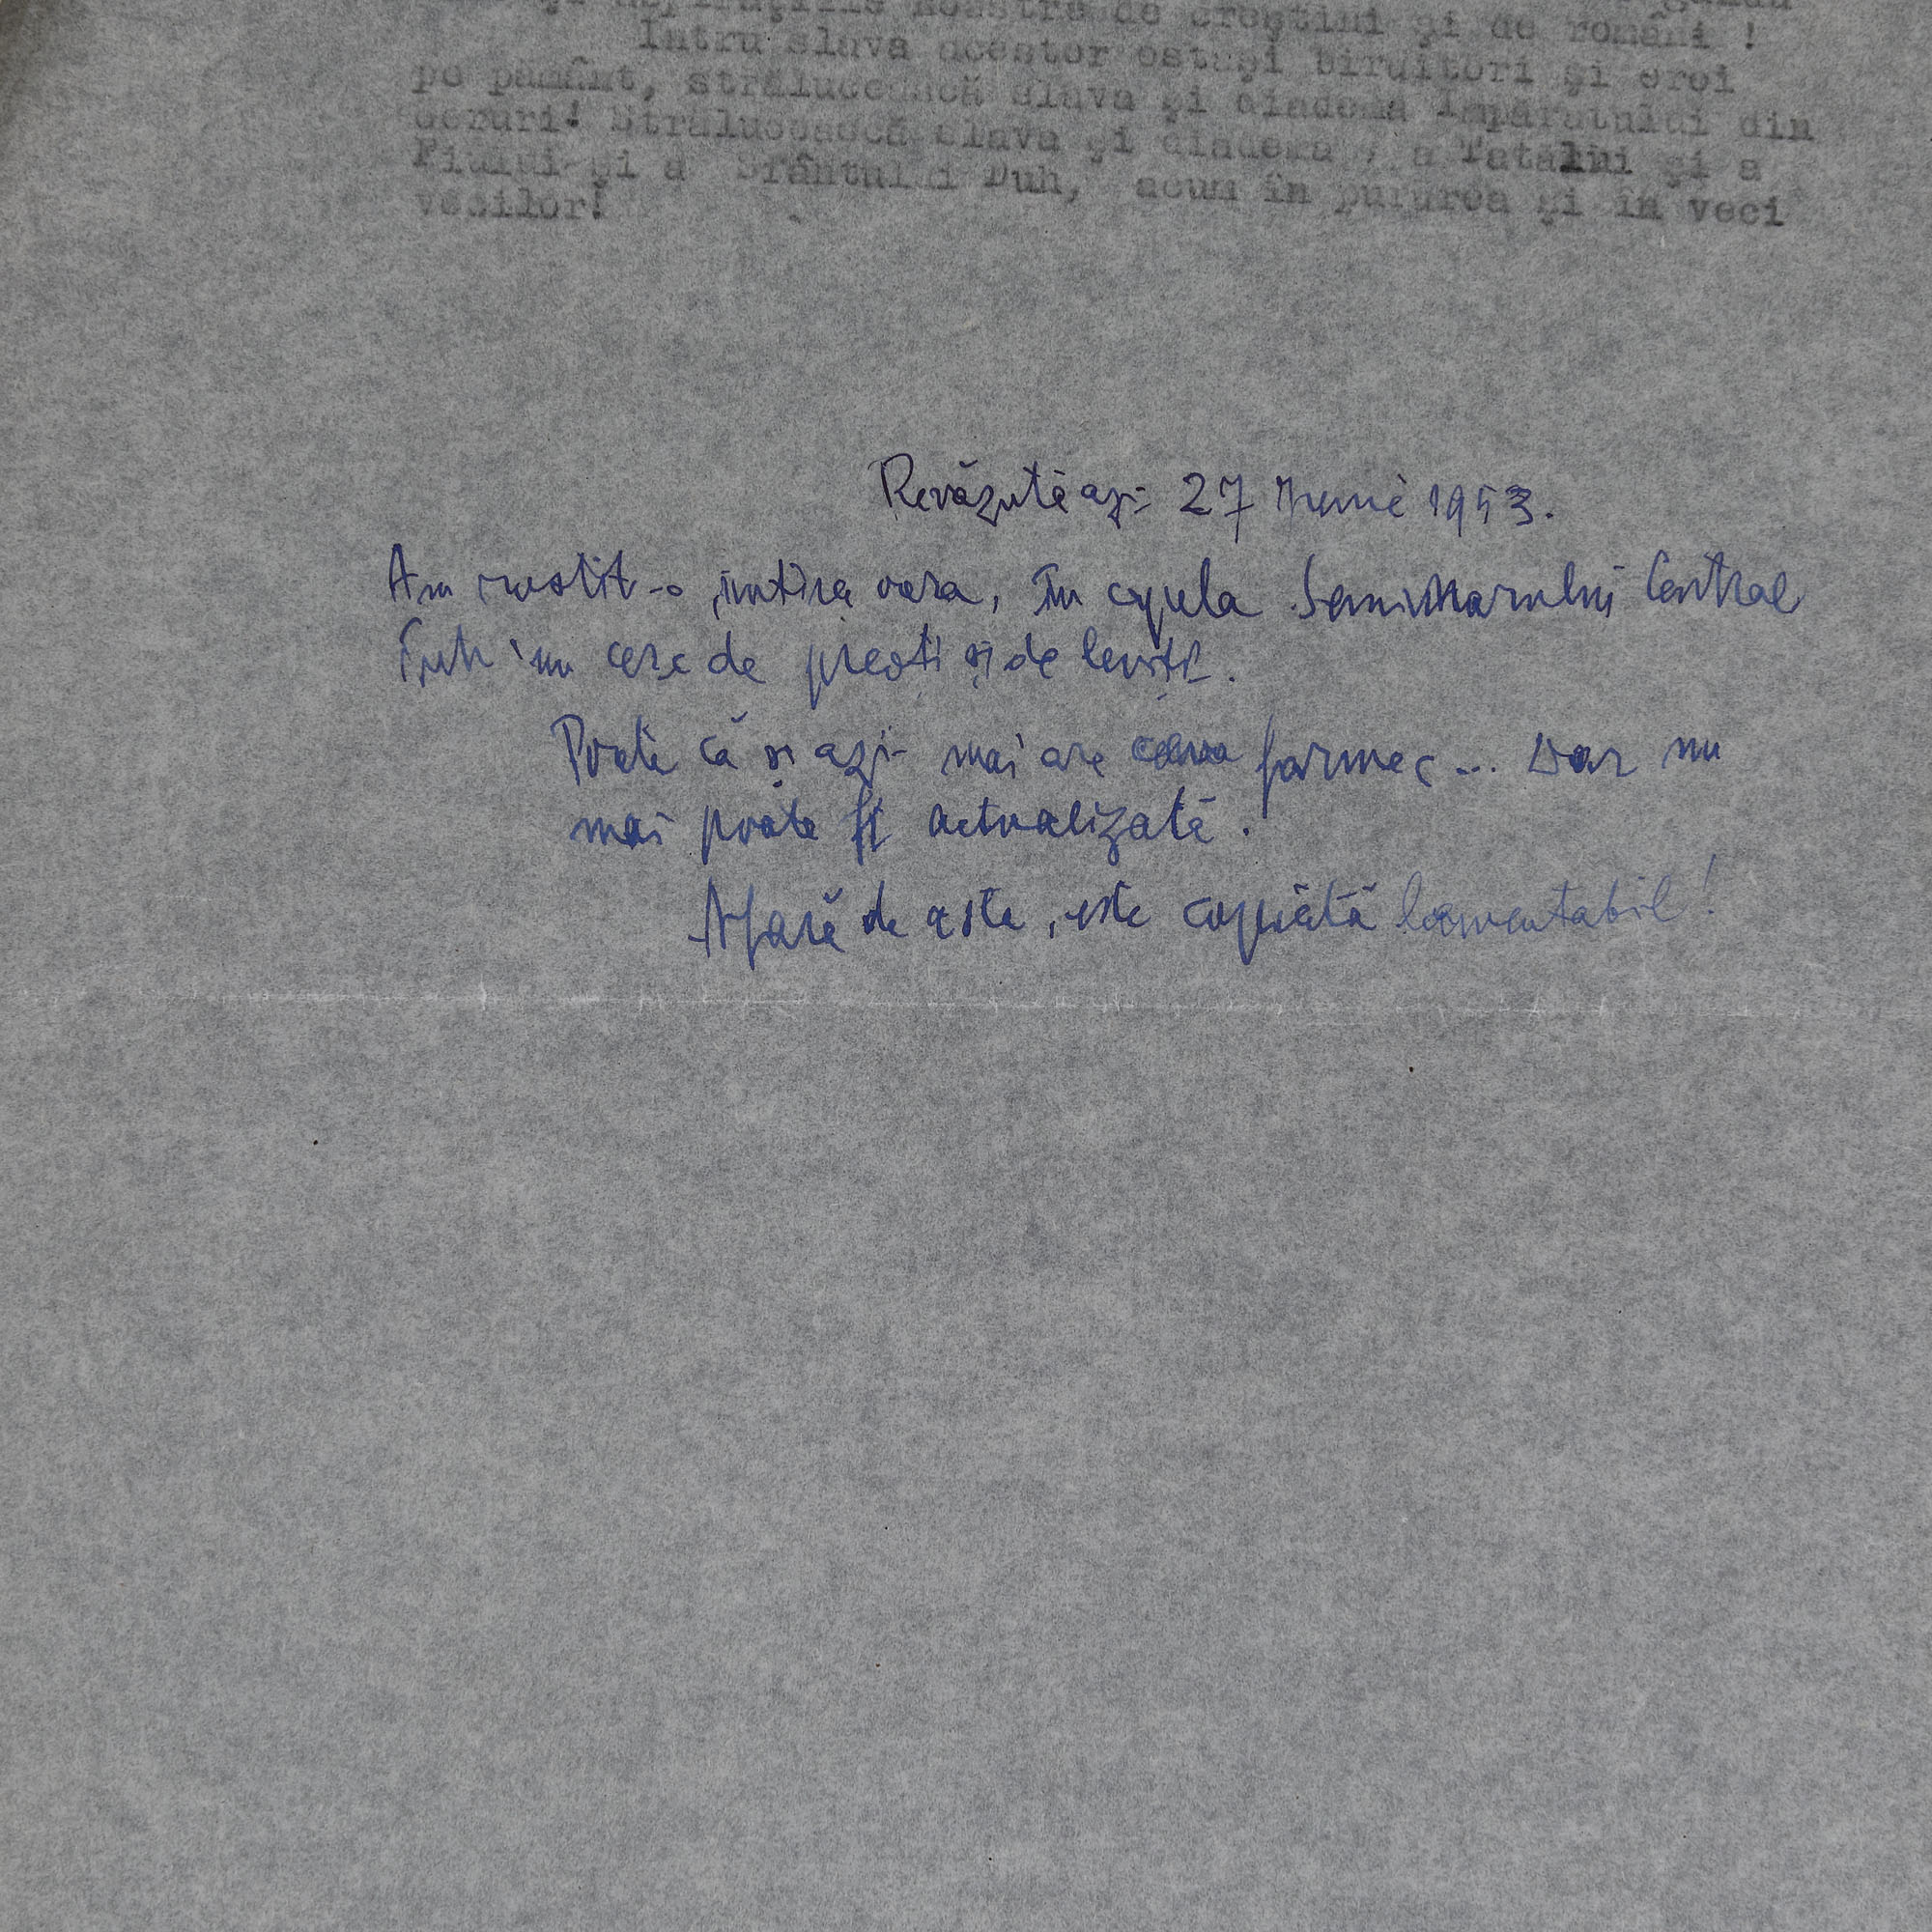 noastre de creştini şi de români !
Intru slava acestor ostaşi biruitori şi eroi
pe pământ, strălucească slava şi diadema Impăratului din
ceruri! Strălucească slava şi diadema , a Tatălui şi a
Fiului şi a Sfântului Duh, acum în pururea şi în veci
vecilor!
Revăzută azi 27 Iunie 1953.
Am rostit-o, întîia oara, în cupula Seminarului Central
într'un cerc de preoți și de leviți.
Poate că și azi mai are ceva farmec... Dar nu
mai poate fi actualizată.
Afară de asta, este copiată lamentabil!